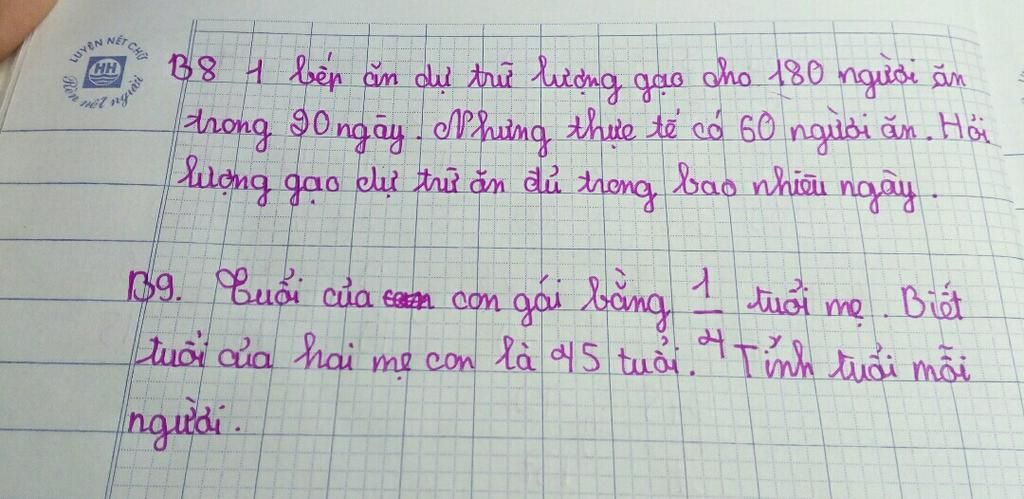 LUYỆN NÉT CHỮ
HH
Rèn nết người
B8 1 bếp ăn dự trữ lượng gạo cho 180 người ăn
trong 90 ngày. Nhưng thực tế có 60 người ăn. Hỏi
lượng gạo dự trữ ăn đủ trong bao nhiêu ngày.
B9. Tuổi của con gái bằng 1/4 tuổi mẹ. Biết
tuổi của hai mẹ con là 45 tuổi. Tính tuổi mỗi
người.